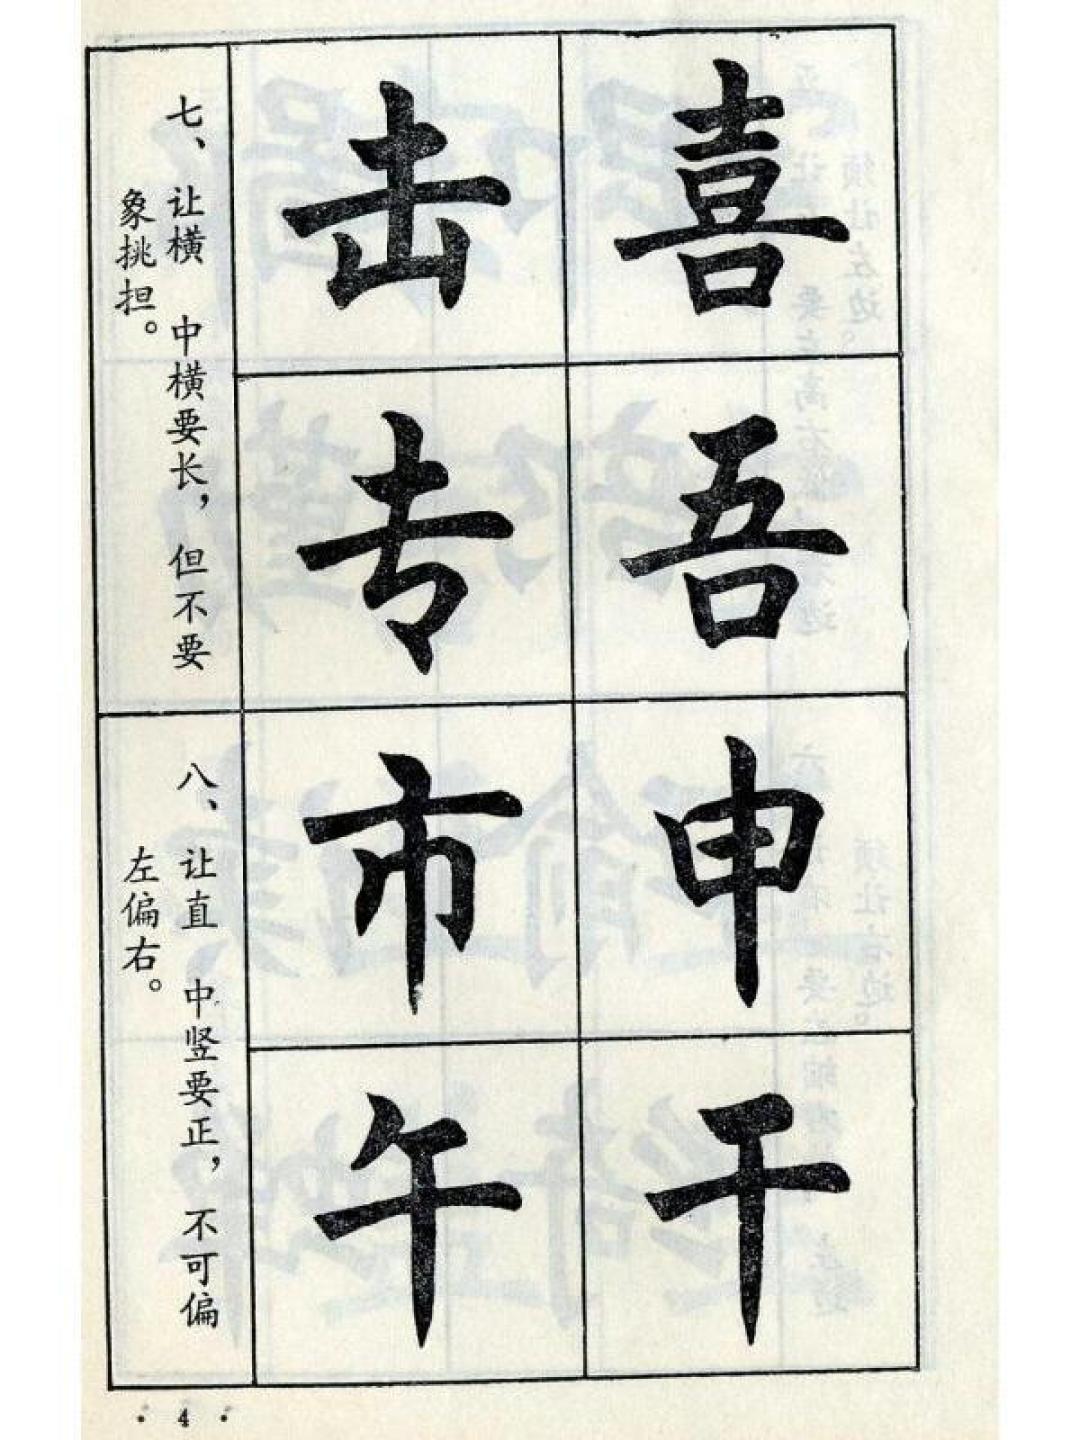 喜 击
吾 专
七、让横 中横要长，但不要
象挑担。
申 市
干 午
八、让直 中竖要正，不可偏
左偏右。
· 4 ·